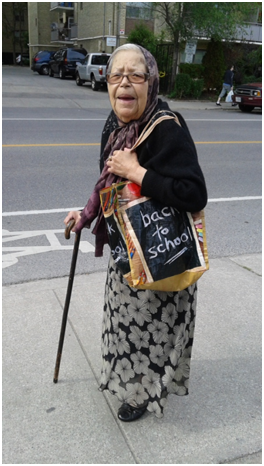 back
to
school